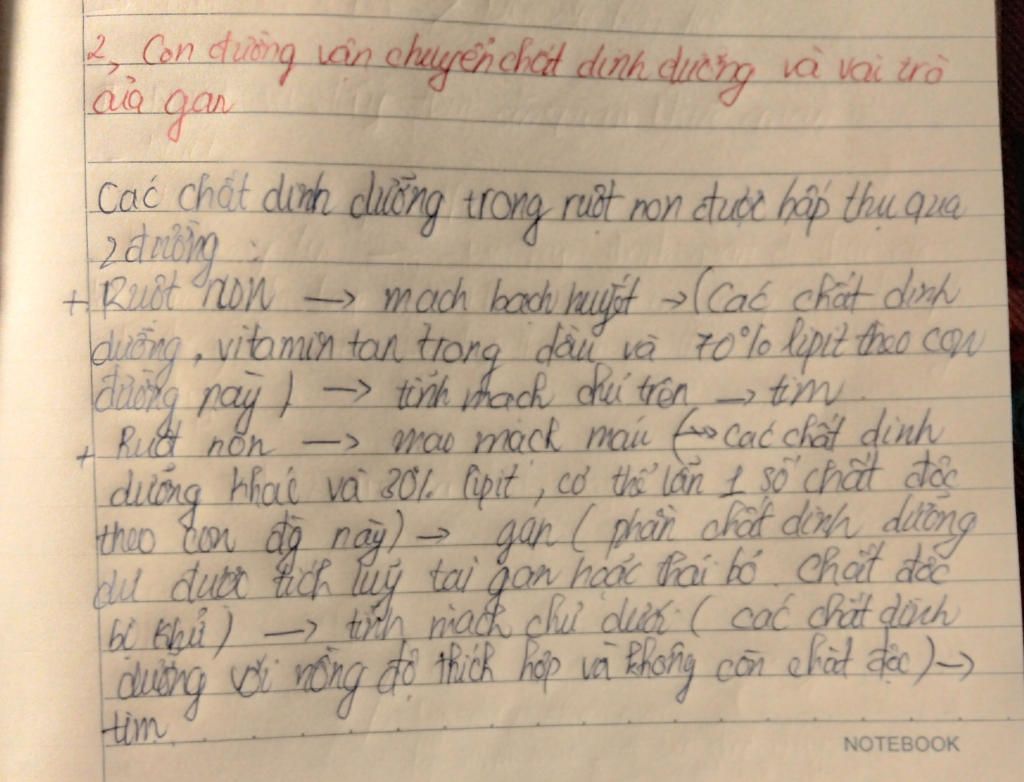 2, Con đường vân chuyển chất dinh dưỡng và vai trò
của gan
Các chất dinh dưỡng trong ruột non được hấp thụ qua
2 đường :
+ Ruột non → mạch bạch huyết → (Các chất dinh
dưỡng, vitamin tan trong dầu và 70% lipit theo con
đường này) → tĩnh mạch chủ trên → tim
+ Ruột non → mao mạch máu (→ các chất dinh
dưỡng khác và 30% lipit, có thể lẫn 1 số chất độc
theo con đg này) → gan (phần chất dinh dưỡng
dư được tích luỹ tại gan hoặc thải bỏ. Chất độc
bị khử) → tĩnh mạch chủ dưới (các chất dinh
dưỡng với nồng độ thích hợp và không còn chất độc) →
tim
NOTEBOOK